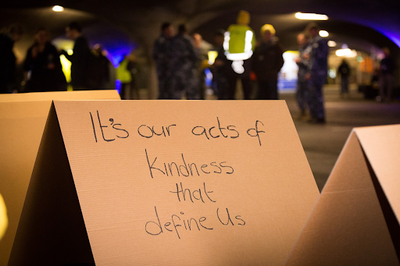 It's our acts of
kindness
that
define Us